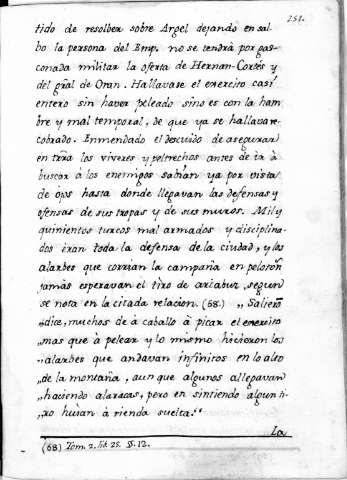 251.
tido de resolber sobre Argel dejando en sal-
bo la persona del Emp. no se tendrà por gas-
conada militar la oferta de Hernan-Cortés y
del gñal de Oran. Hallavase el exercito casi
entero sin haver peleado sino es con la ham
bre y mal temporal, de que ya se hallava re-
cobrado. Enmendado el descuido de asegurar
en trra los viveres y peltrechos antes de ir à
buscar à los enemigos sabian ya por vista
de ojos hasta donde llegavan las defensas y
ofensas de sus tropas y de sus muros. Mil y
quinientos turcos mal armados y disciplina-
dos eran toda la defensa de la ciudad, y los
alarbes que corrian la campaña en peloton
jamàs esperavan el tiro de arcabuz, segun
se nota en la citada relacion. (68.) „ Salierõ
„dice, muchos de à caballo à picar el exercito
„mas que à pelear y lo mismo hicieron los
„alarbes que andavan infinitos en lo alto
„de la montaña, aunque algunos allegavan
„haciendo alaracas, pero en sintiendo algun ti-
„ro huian à rienda suelta."
La
(68) Tom. 2. lib. 25. §. 12.